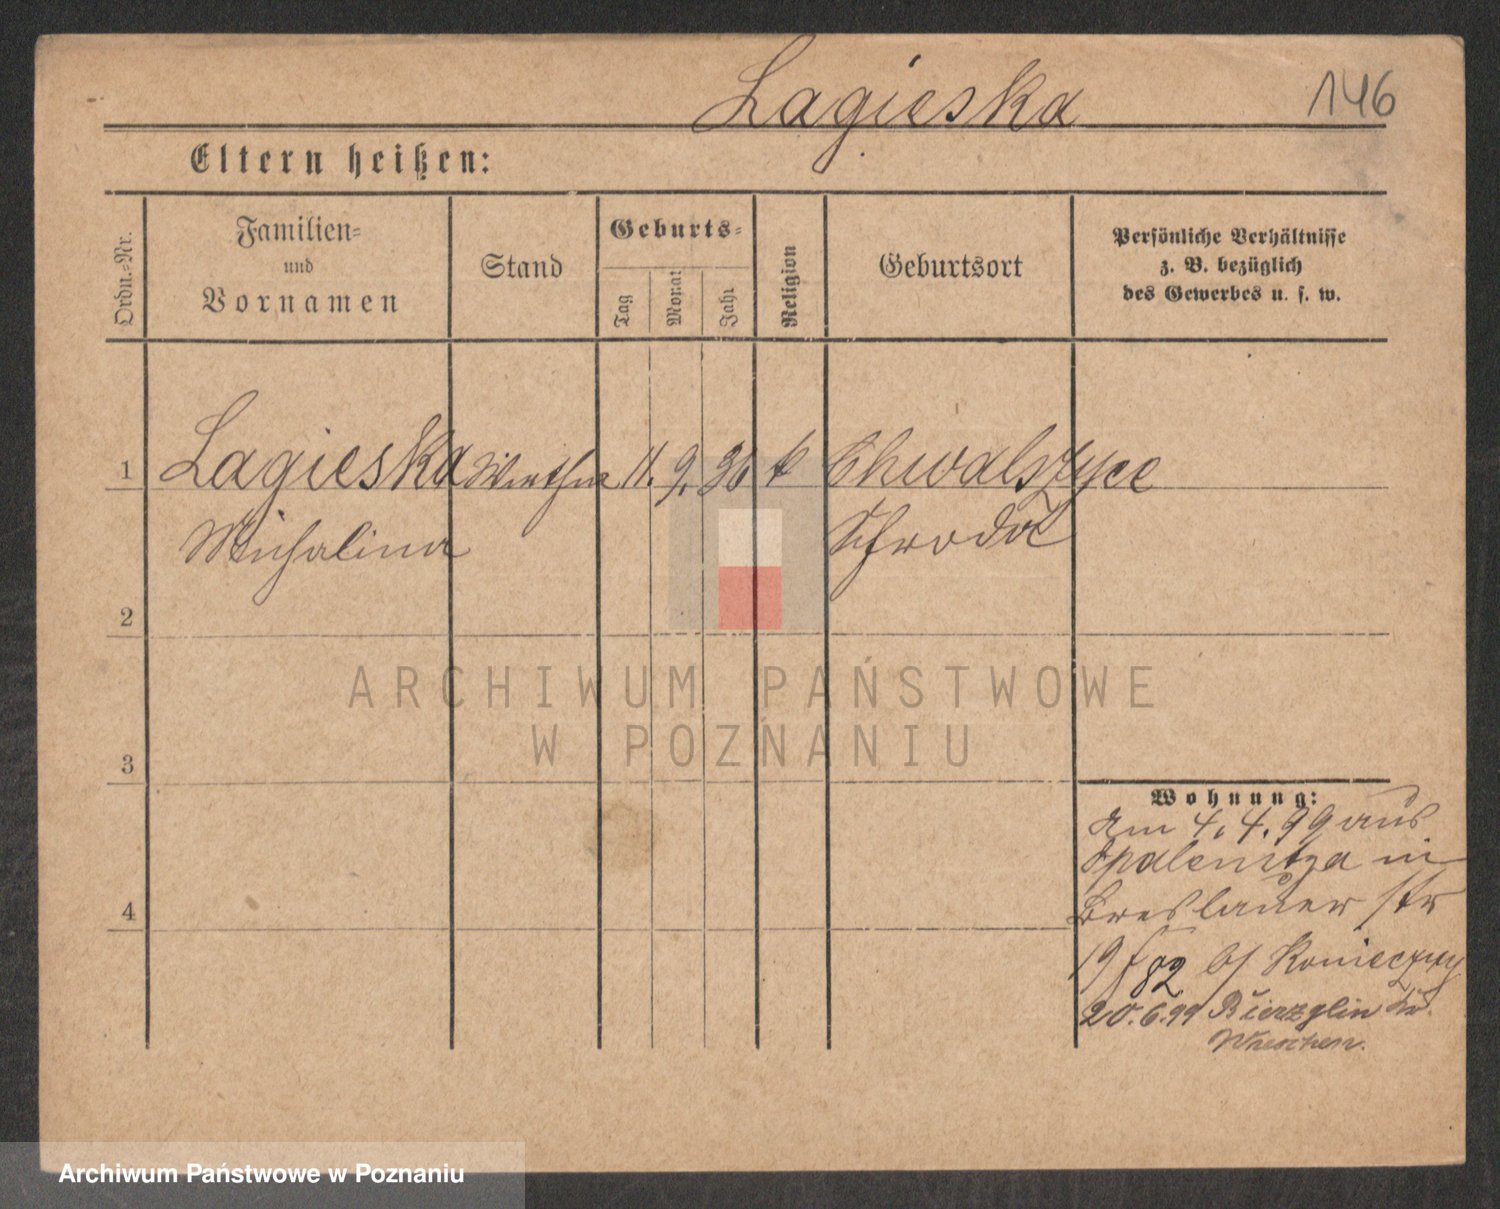 Lagieska
146
Eltern heißen:
Ordn.-Nr.
Familien-
und
Vornamen
Stand
Geburts-
Tag
Monat
Jahr
Religion
Geburtsort
Persönliche Verhältnisse
z. B. bezüglich
des Gewerbes u. s. w.
1
Lagieska
11. 9. 36
k
Chwalszyce
Michalina
Schroda
2
ARCHIWUM PAŃSTWOWE
W POZNANIU
3
Wohnung:
Am 4. 4. 99 aus
Opalenitza in
Breslauer str
19 82 b/ Konieczny
4
20.6.99 Bierzglin Kr.
Wreschen.
Archiwum Państwowe w Poznaniu